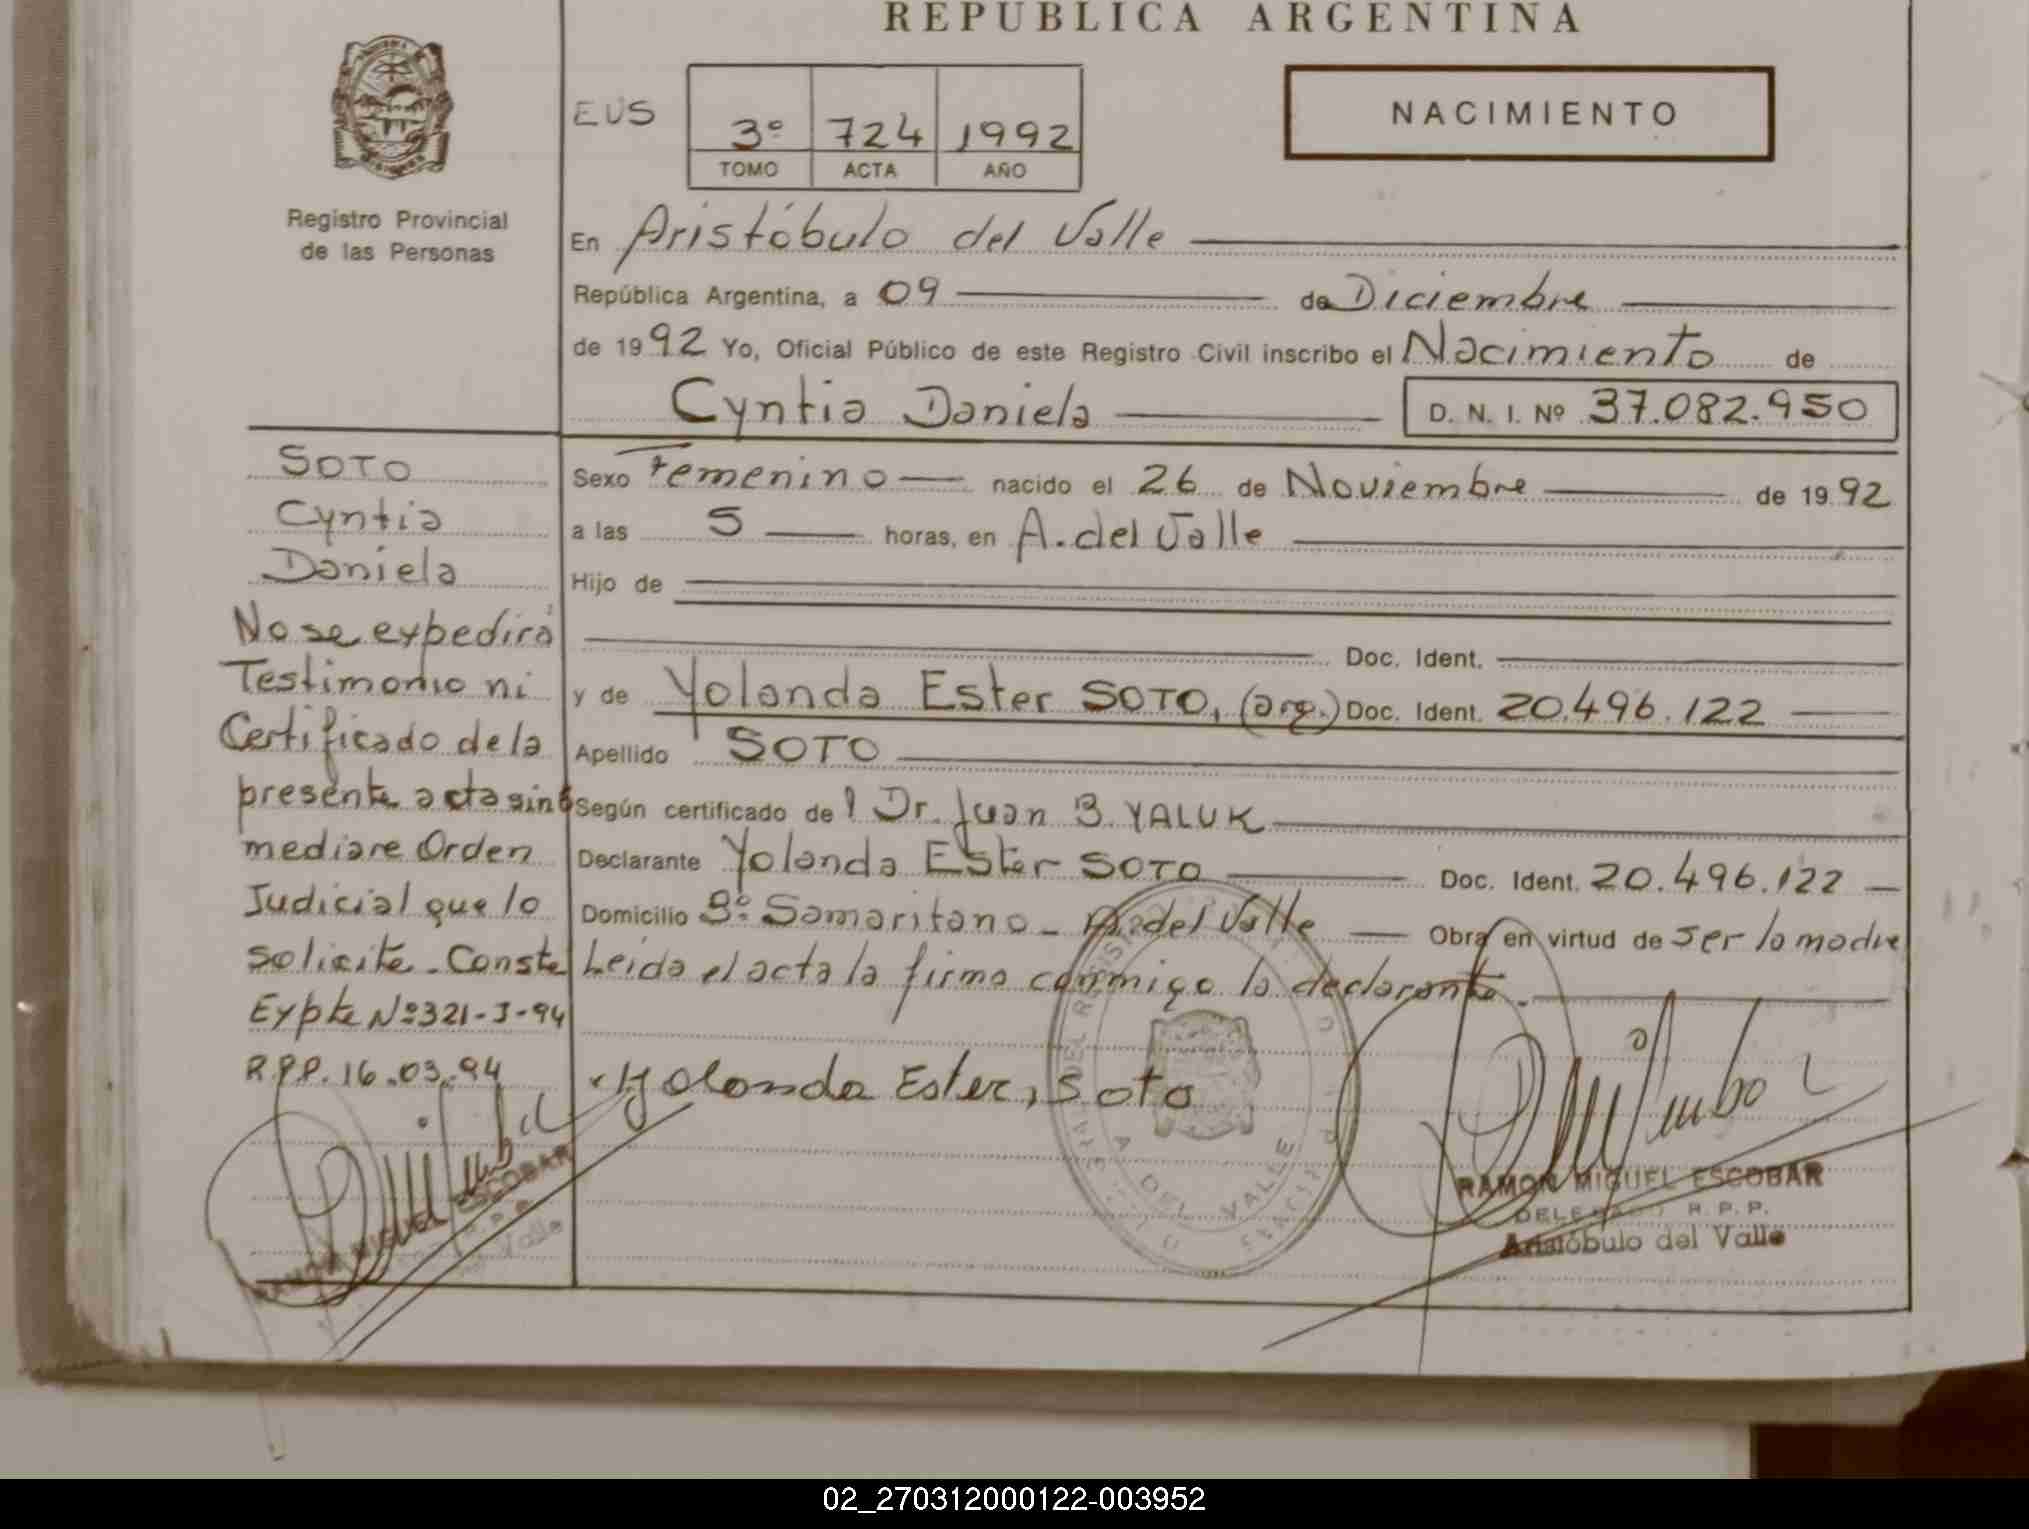 REPUBLICA ARGENTINA
Registro Provincial
de las Personas
EUS
3º 724 1992
TOMO ACTA AÑO
NACIMIENTO
En Aristóbulo del Valle
República Argentina, a 09 de Diciembre
de 1992 Yo, Oficial Público de este Registro Civil inscribo el Nacimiento de
Cyntia Daniela D. N. I. Nº 37.082.950
Sexo Femenino nacido el 26 de Noviembre de 1992
a las 5 horas, en A. del Valle
Hijo de
Doc. Ident.
y de Yolanda Ester SOTO, (arg.) Doc. Ident. 20.496.122
Apellido SOTO
Según certificado del Dr. Juan B. YALUK
Declarante Yolanda Ester SOTO Doc. Ident. 20.496.122
Domicilio Bº Samaritano - A. del Valle Obra en virtud de ser la madre
Leida el acta la firma conmigo la declarante.
Yolanda Ester, Soto
SOTO
Cyntia
Daniela
No se expedirá
Testimonio ni
Certificado de la
presente acta sin
mediare Orden
Judicial que lo
solicite. Conste
Expte Nº 321-J-94
R.P.P. 16.03.94
RAMON MIGUEL ESCOBAR
R. P. P.
Valle
A DEL VALLE
RAMON MIGUEL ESCOBAR
DELEGADO R. P. P.
Aristóbulo del Valle
02_270312000122-003952